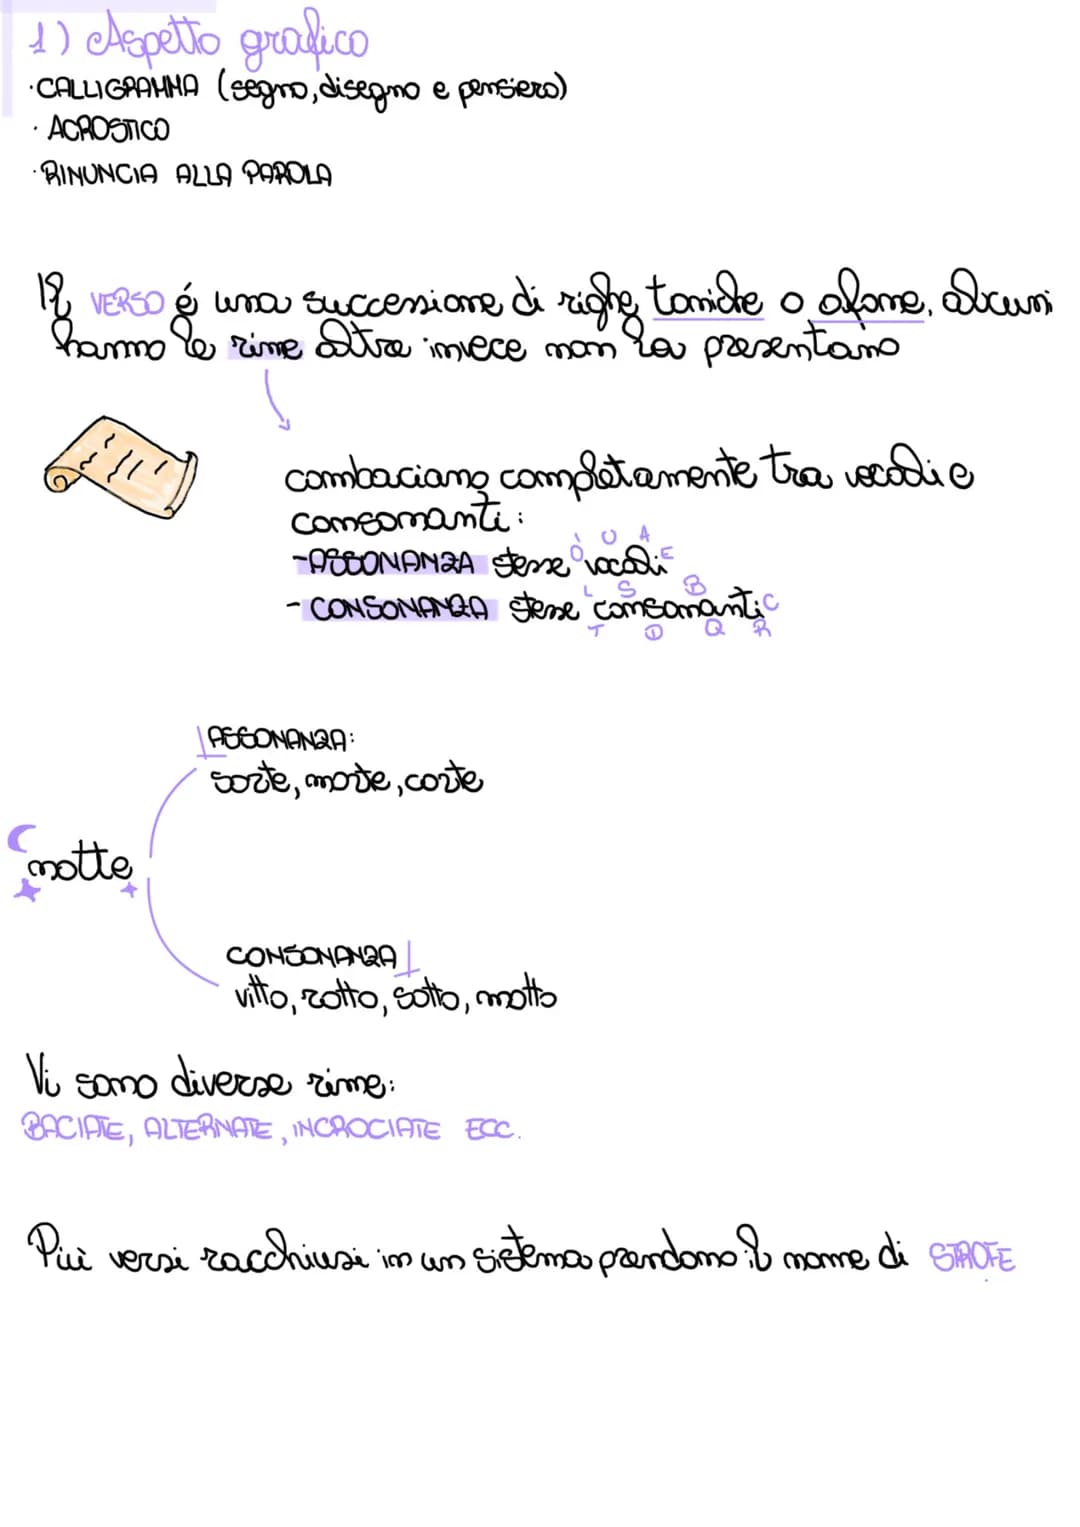 1) Aspetto grafico
·CALLIGRAMMA (segno, disegno e pensiero)
· ACROSTICO
·RINUNCIA ALLA PAROLA
Il VERSO é una successione di righe toniche o afone, alcuni
hanno le rime altre invece non la presentano
combaciano completamente tra vocali e
consonanti:
-ASSONANZA stesse vocali
O U A E
-CONSONANZA stesse consonanti
L S B C
T D Q R
ASSONANZA:
sorte, morte, corte
notte
CONSONANZA
vitto, rotto, sotto, motto
Vi sono diverse rime:
BACIATE, ALTERNATE, INCROCIATE ECC.
Più versi racchiusi in un sistema prendono il nome di STROFE